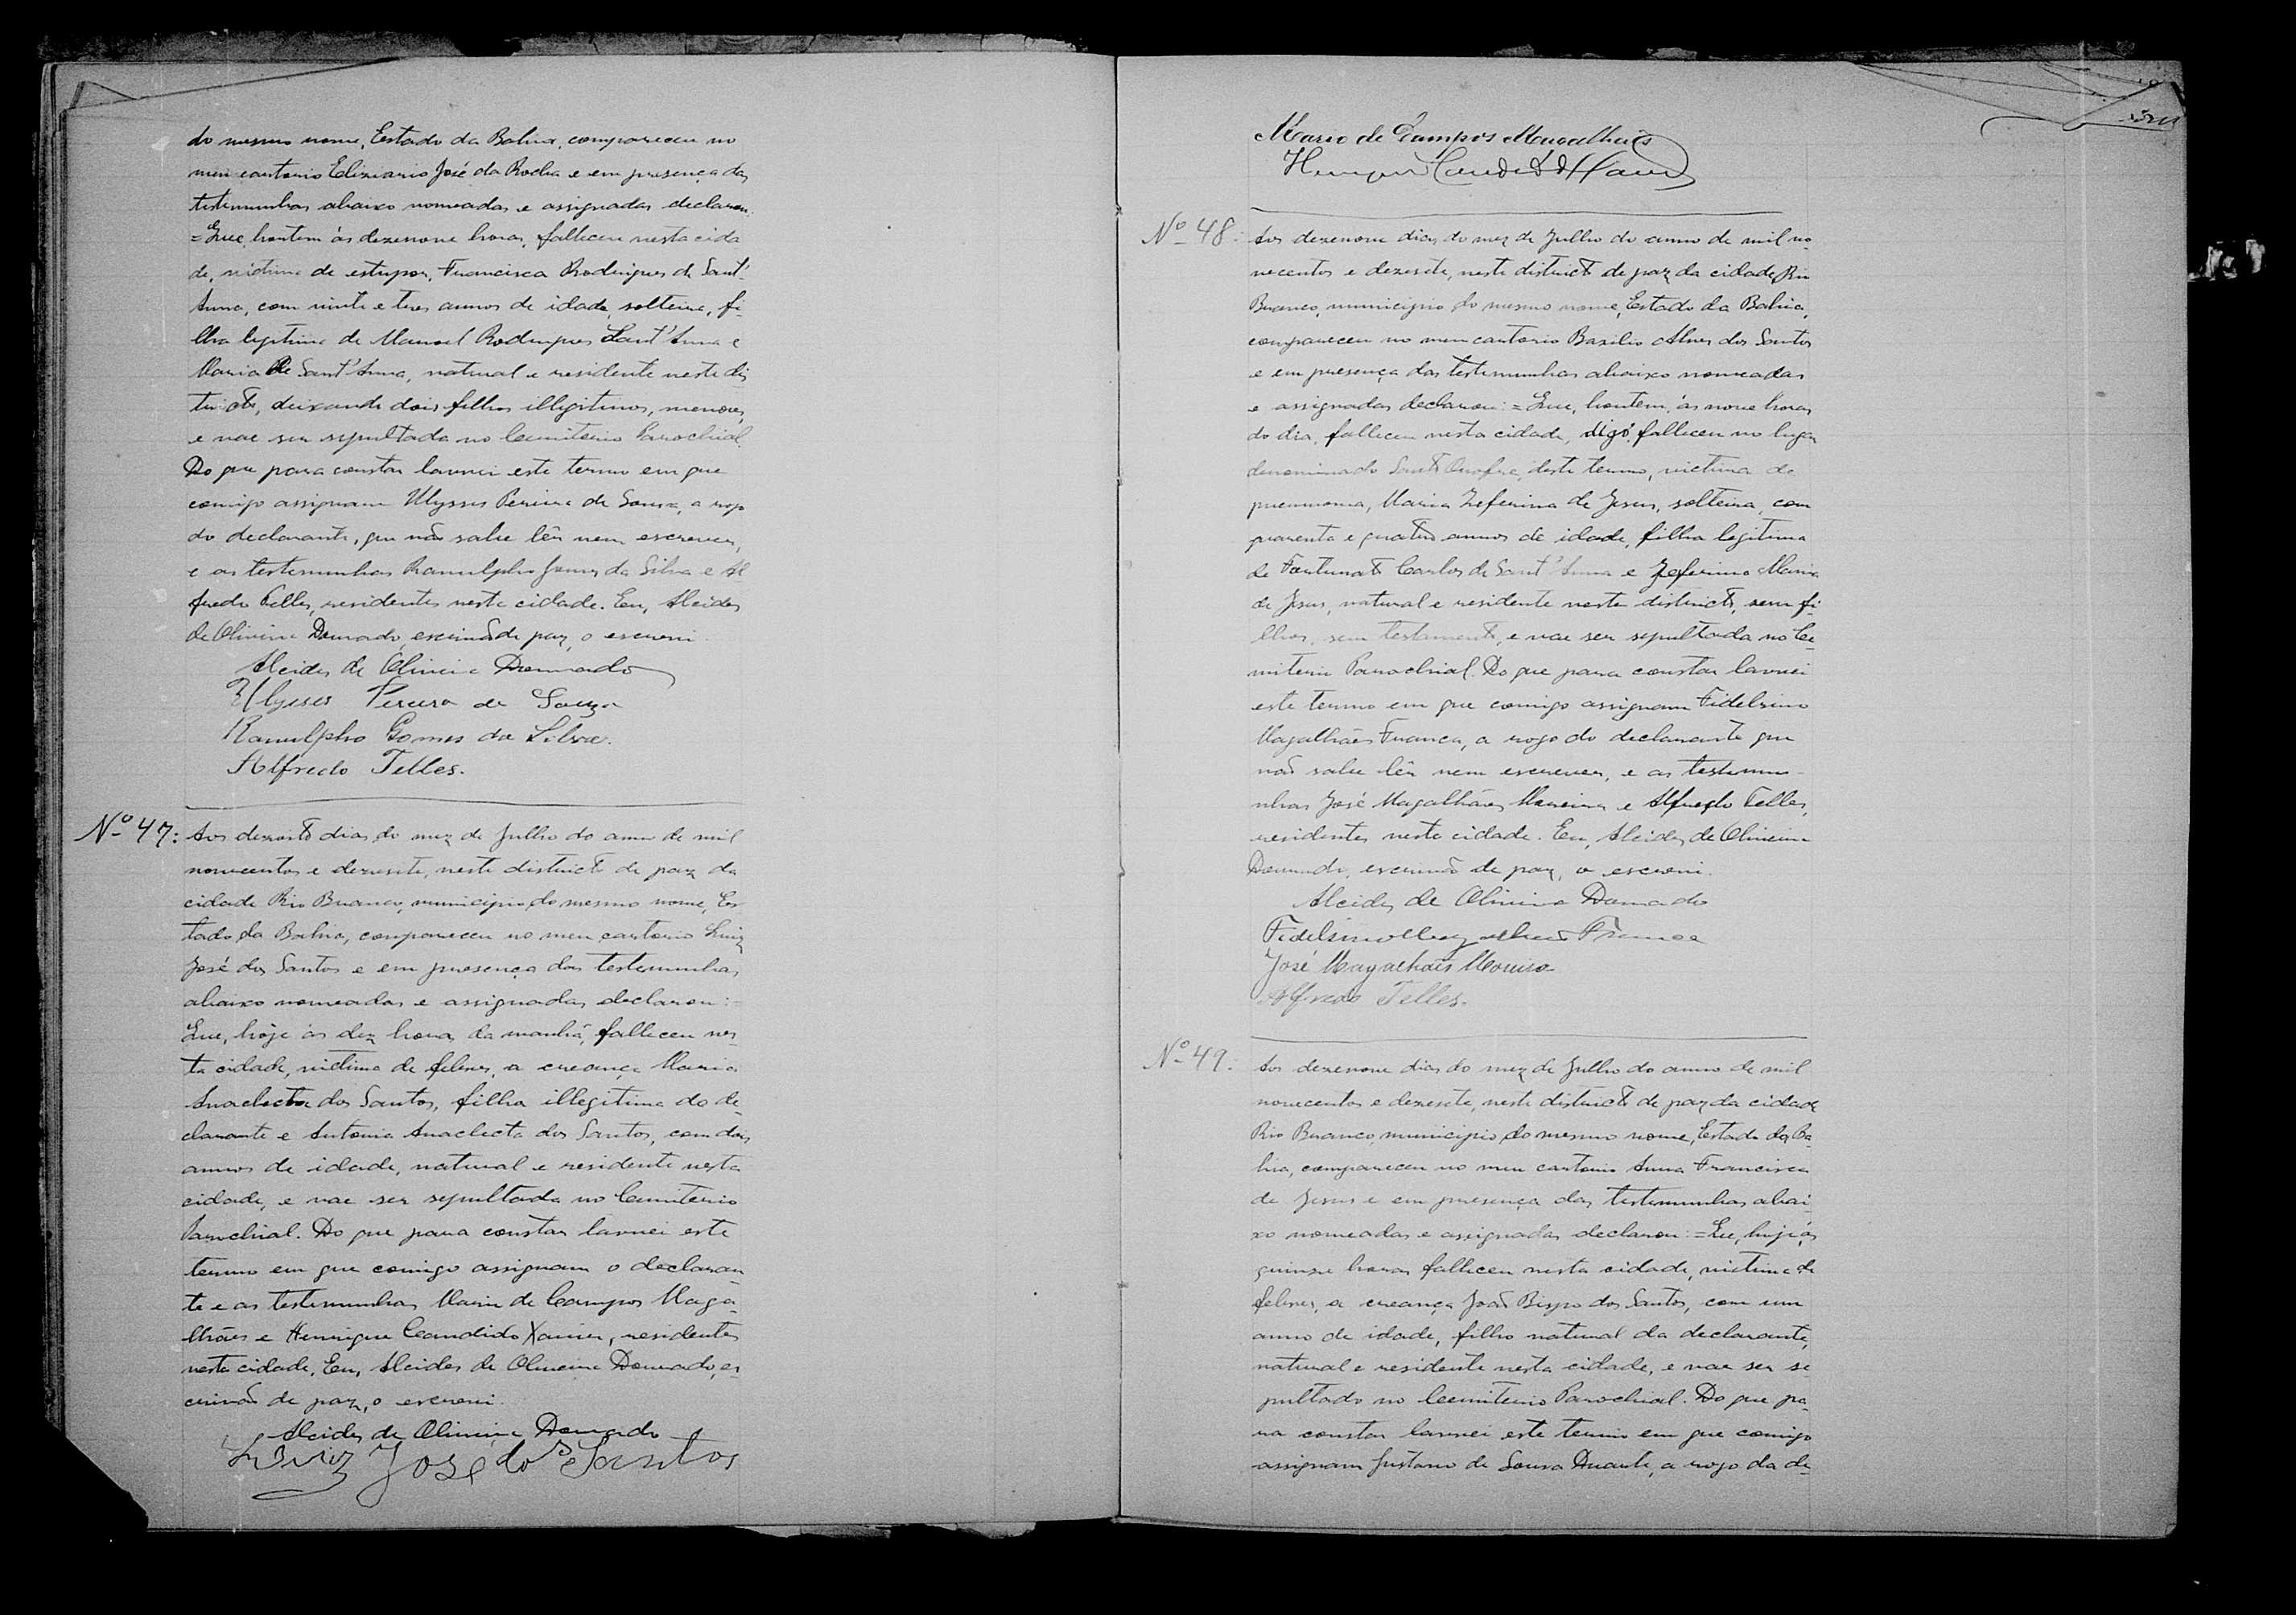 do mesmo nome, Estado da Bahia, compareceu no
meu cartorio Eliziario José da Rocha e em presença das
testemunhas abaixo nomeadas e assignadas declarou
= Que, hontem ás dezenove horas, falleceu nesta cida
de, victima de estupor, Francisca Rodrigues de Sant'
Anna, com vinte e tres annos de idade, solteira, fi-
lha legitima de Manoel Rodrigues Sant'Anna e
Maria de Sant'Anna, natural e residente neste dis
tricto, deixando dois filhos illigitimos, menores,
e vae ser sepultada no Cemiterio Parochial.
Do que para constar lavrei este termo em que
comigo assignam Ulysses Pereira de Souza, a rogo
do declarante, que não sabe lêr nem escrever,
e as testemunhas Ranulpho Gomes da Silva e Al
fredo Telles, residentes nesta cidade. Eu, Alcides
de Oliveira Dourado, escrivão de paz, o escrevi.
Alcides de Oliveira Dourado
Ulysses Pereira de Souza
Ranulpho Gomes da Silva.
Alfredo Telles.
Nº 47: Aos dezoito dias do mez de Julho do anno de mil
novecentos e dezesete, neste districto de paz da
cidade Rio Branco, municipio do mesmo nome, Es
tado da Bahia, compareceu no meu cartorio Luiz
José dos Santos e em presença das testemunhas
abaixo nomeadas e assignadas declarou: =
Que, hoje ás dez horas da manhã, falleceu nes-
ta cidade, victima de febres, a creança Maria
Anaclecta dos Santos, filha illegitima do de-
clarante e Antonia Anaclecta dos Santos, com dois
annos de idade, natural e residente nesta
cidade, e vae ser sepultada no Cemiterio
Parochial. Do que para constar lavrei este
termo em que comigo assignam o declaran-
te e as testemunhas Mario de Campos Maga-
lhães e Henrique Candido Xavier, residentes
nesta cidade. Eu, Alcides de Oliveira Dourado, es-
crivão de paz, o escrevi.
Alcides de Oliveira Dourado
Luiz José dos Santos
Mario de Campos Magalhães
Henrique Candido Xavier
Nº 48: Aos dezenove dias do mez de Julho do anno de mil no
vecentos e dezesete, neste districto de paz da cidade Rio
Branco, municipio do mesmo nome, Estado da Bahia,
compareceu no meu cartorio Basilio Alves dos Santos
e em presença das testemunhas abaixo nomeadas
e assignadas declarou: = Que, hontem, ás nove horas
do dia, falleceu nesta cidade, digo, falleceu no lugar
denominado Santo Onofre, deste termo, victima de
pneumonia, Maria Zeferina de Jesus, solteira, com
quarenta e quatro annos de idade, filha legitima
de Fortunato Carlos de Sant'Anna e Zeferina Maria
de Jesus, natural e residente neste districto, sem fi-
lhos, sem testamento, e vae ser sepultada no Ce-
miterio Parochial. Do que para constar lavrei
este termo em que comigo assignam Fidelsino
Magalhães França, a rogo do declarante que
não sabe lêr nem escrever, e as testemu-
nhas José Magalhães Moreira e Alfredo Telles,
residentes nesta cidade. Eu, Alcides de Oliveira
Dourado, escrivão de paz, o escrevi.
Alcides de Oliveira Dourado
Fidelsino Magalhães França
José Magalhães Moreira
Alfredo Telles.
Nº 49: Aos dezenove dias do mez de Julho do anno de mil
novecentos e dezesete, neste districto de paz da cidade
Rio Branco, municipio do mesmo nome, Estado da Ba-
hia, compareceu no meu cartorio Anna Francisca
de Jesus e em presença das testemunhas abai-
xo nomeadas e assignadas declarou: = Que, hoje, ás
quinze horas falleceu nesta cidade, victima de
febres, a creança João Bispo dos Santos, com um
anno de idade, filho natural da declarante,
natural e residente nesta cidade, e vae ser se
pultado no Cemiterio Parochial. Do que pa-
ra constar lavrei este termo em que comigo
assignam Gustavo de Souza Duarte, a rogo da de-